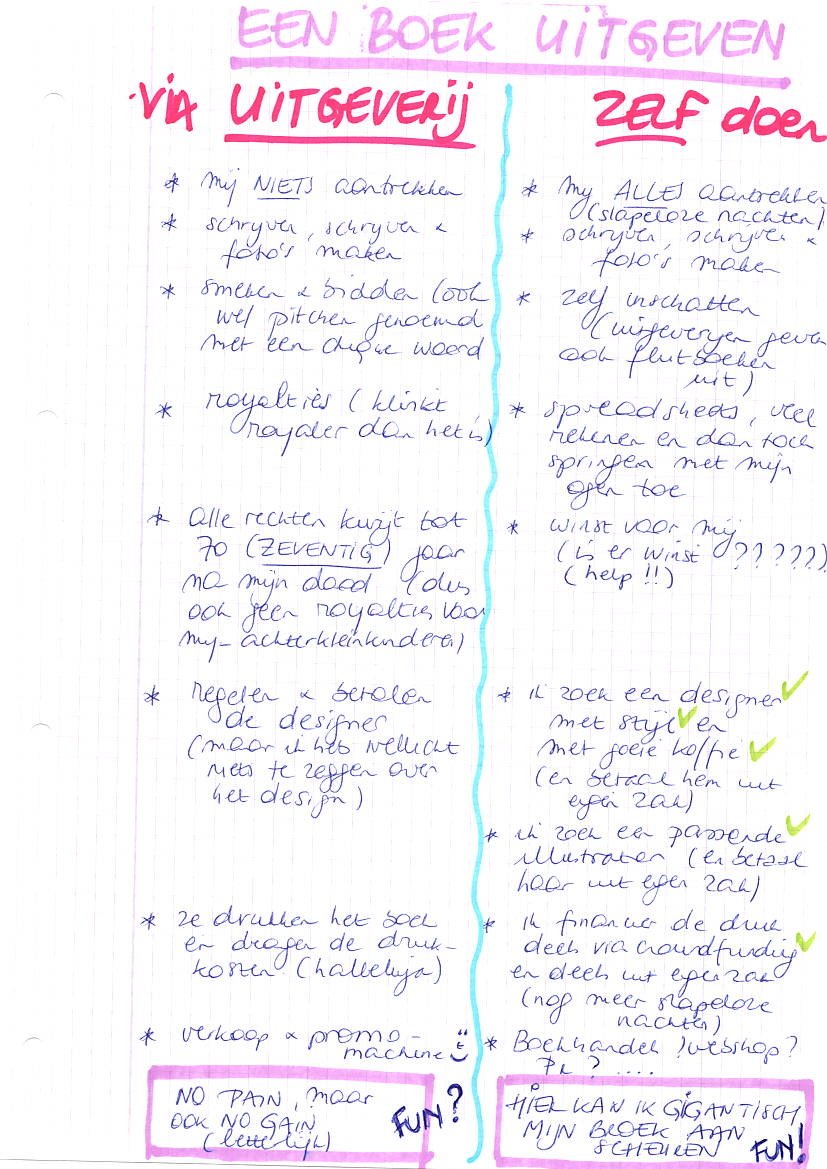 EEN BOEK UITGEVEN
VIA UITGEVERIJ
* mij NIETS aantrekken
* schrijven, schrijven &
foto's maken
* smeken & bidden (ook
wel pitchen genoemd
met een chique woord
* royalties (klinkt
royaler dan het is)
* alle rechten kwijt tot
70 (ZEVENTIG) jaar
na mijn dood (dus
ook geen royalties voor
mijn achterkleinkinderen)
* regelen & betalen
de designer
(maar ik heb wellicht
niets te zeggen over
het design)
* ze drukken het boek
en dragen de druk-
kosten (halleluja)
* verkoop & promo-
machine
NO PAIN, maar
OOK NO GAIN
(letterlijk)
FUN?
ZELF doen
* mij ALLES aantrekken
(slapeloze nachten)
* schrijven, schrijven &
foto's maken
* zelf inschatten
(uitgeverijen geven
ook flutboeken
uit)
* spreadsheets, veel
rekenen en dan toch
springen met mijn
ogen toe
* winst voor mij
(is er winst ?????)
(help !!)
* ik zoek een designer
met stijl en
met goeie koffie
(en betaal hem uit
eigen zak)
* ik zoek een passende
illustrator (en betaal
haar uit eigen zak)
* ik financier de druk
deels via crowdfunding
en deels uit eigen zak
(nog meer slapeloze
nachten)
* Boekhandel? webshop?
PR? ....
HIER KAN IK GIGANTISCH
MIJN BROEK AAN
SCHEUREN
FUN!